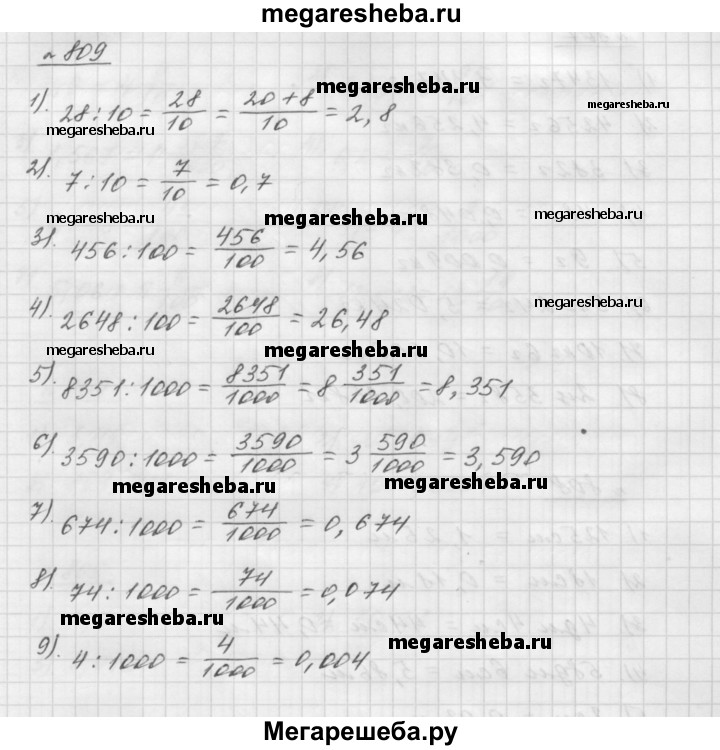 megaresheba.ru
№ 809
1). 28:10 = 28/10 = (20+8)/10 = 2,8
megaresheba.ru
megaresheba.ru
megaresheba.ru
2). 7:10 = 7/10 = 0,7
megaresheba.ru
megaresheba.ru
megaresheba.ru
3). 456:100 = 456/100 = 4,56
4). 2648:100 = 2648/100 = 26,48
megaresheba.ru
megaresheba.ru
megaresheba.ru
5). 8351:1000 = 8351/1000 = 8 351/1000 = 8,351
6). 3590:1000 = 3590/1000 = 3 590/1000 = 3,590
megaresheba.ru
megaresheba.ru
7). 674:1000 = 674/1000 = 0,674
8). 74:1000 = 74/1000 = 0,074
megaresheba.ru
megaresheba.ru
9). 4:1000 = 4/1000 = 0,004
Мегарешеба.ру